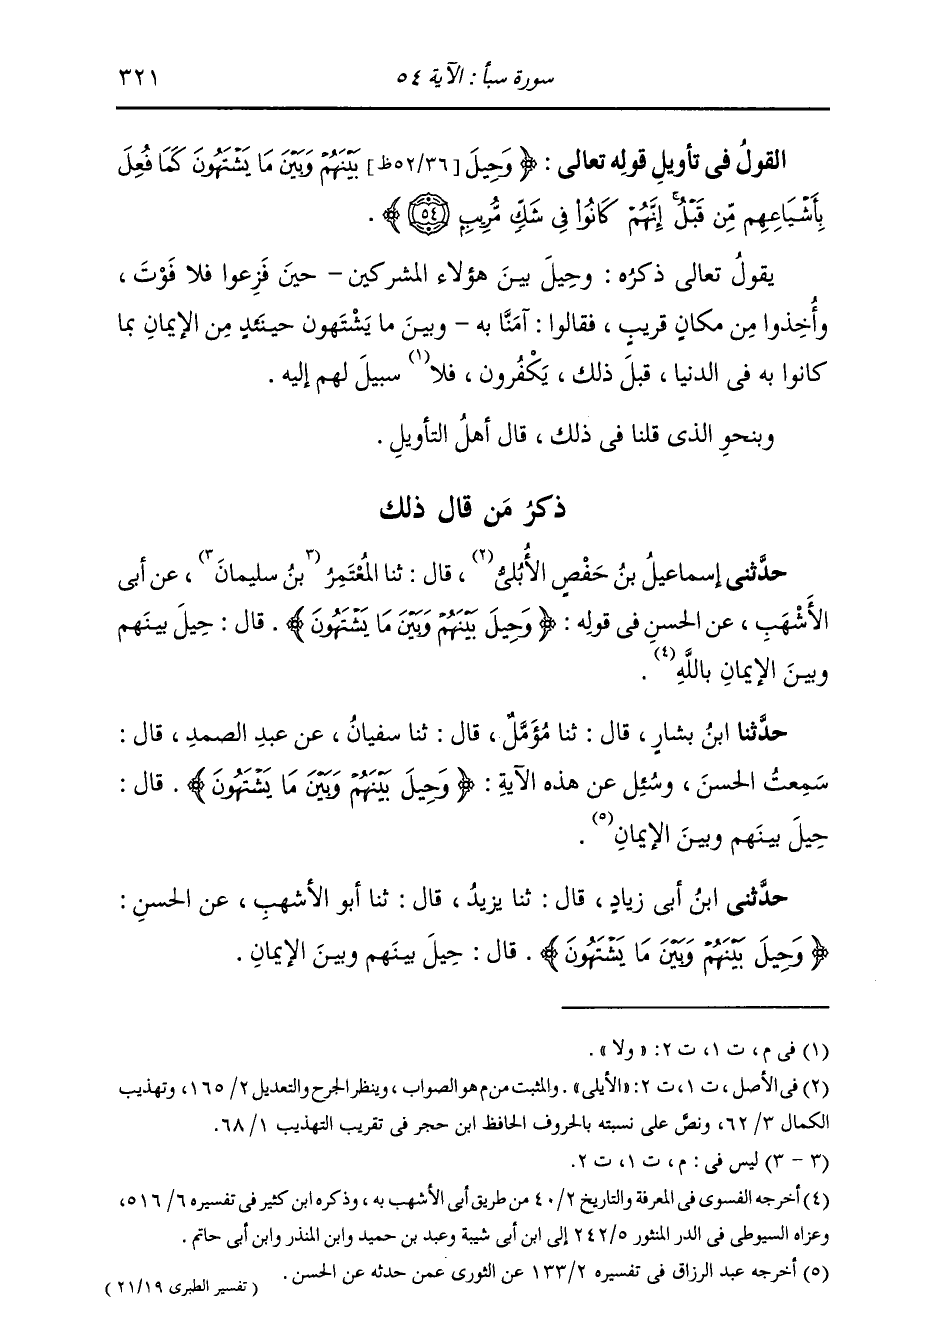 سورة سبأ : الآية ٥٤ ٣٢١
القولُ فى تأويلِ قولِه تعالى : ﴿ وَحِيلَ [٥٢/٣٦ظ] بَيْنَهُمْ وَبَيْنَ مَا يَشْتَهُونَ كَمَا فُعِلَ
بِأَشْيَاعِهِم مِّن قَبْلُ ۚ إِنَّهُمْ كَانُوا۟ فِى شَكٍّ مُّرِيبٍ ٥٤ ﴾ .
يقولُ تعالى ذكرُه : وحِيلَ بينَ هؤلاء المشركين – حينَ فَزِعوا فلا فَوْتَ ،
وأُخِذوا مِن مكانٍ قريبٍ ، فقالوا : آمَنَّا به – وبينَ ما يَشْتَهون حينَئذٍ مِن الإيمانِ بما
كانوا به فى الدنيا ، قبلَ ذلك ، يَكْفُرون ، فلا(١) سبيلَ لهم إليه .
وبنحوِ الذى قلنا فى ذلك ، قال أهلُ التأويلِ .
ذكرُ مَن قال ذلك
حدَّثنى إسماعيلُ بنُ حَفْصٍ الأُبُلىُّ(٢) ، قال : ثنا المُعْتَمِرُ (٣بنُ سليمانَ٣) ، عن أبى
الأَشْهَبِ ، عن الحسنِ فى قولِه : ﴿ وَحِيلَ بَيْنَهُمْ وَبَيْنَ مَا يَشْتَهُونَ ﴾ . قال : حِيلَ بينَهم
وبينَ الإيمانِ باللَّهِ(٤) .
حدَّثنا ابنُ بشارٍ ، قال : ثنا مُؤَمَّلٌ ، قال : ثنا سفيانُ ، عن عبدِ الصمدِ ، قال :
سَمِعتُ الحسنَ ، وسُئِل عن هذه الآيةِ : ﴿ وَحِيلَ بَيْنَهُمْ وَبَيْنَ مَا يَشْتَهُونَ ﴾ . قال :
حِيلَ بينَهم وبينَ الإيمانِ(٥) .
حدَّثنى ابنُ أبى زيادٍ ، قال : ثنا يزيدُ ، قال : ثنا أبو الأشهبِ ، عن الحسنِ :
﴿ وَحِيلَ بَيْنَهُمْ وَبَيْنَ مَا يَشْتَهُونَ ﴾ . قال : حِيلَ بينَهم وبينَ الإيمانِ .
(١) فى م، ت ١، ت ٢: « ولا » .
(٢) فى الأصل ، ت ١، ت ٢: «الأيلى» . والمثبت من م هو الصواب ، وينظر الجرح والتعديل ٢/ ١٦٥، وتهذيب
الكمال ٣/ ٦٢، ونصَّ على نسبته بالحروف الحافظ ابن حجر فى تقريب التهذيب ١/ ٦٨.
(٣ – ٣) ليس فى : م، ت ١، ت ٢.
(٤) أخرجه الفسوى فى المعرفة والتاريخ ٢/ ٤٠ من طريق أبى الأشهب به ، وذكره ابن كثير فى تفسيره ٦/ ٥١٦،
وعزاه السيوطى فى الدر المنثور ٥/ ٢٤٢ إلى ابن أبى شيبة وعبد بن حميد وابن المنذر وابن أبى حاتم .
(٥) أخرجه عبد الرزاق فى تفسيره ٢/ ١٣٣ عن الثورى عمن حدثه عن الحسن .
( تفسير الطبرى ٢١/١٩ )